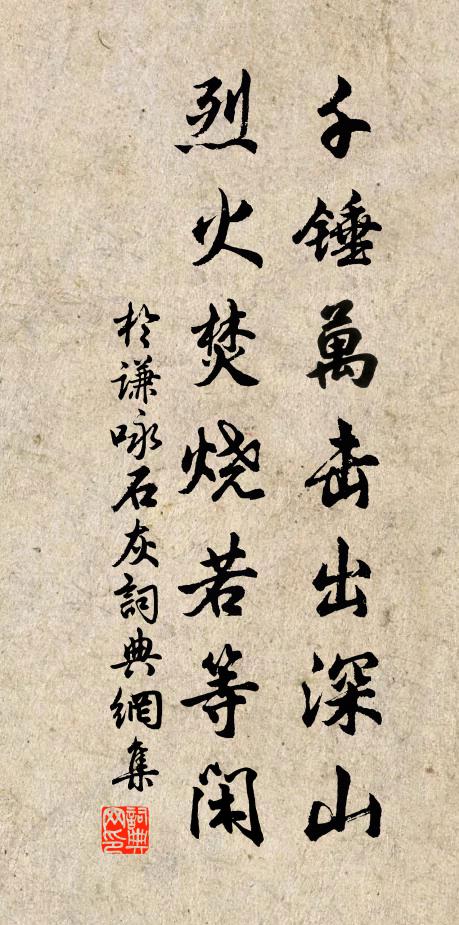 千锤萬击出深山
烈火焚烧若等闲
於谦咏石灰詞典網集
詞典網印